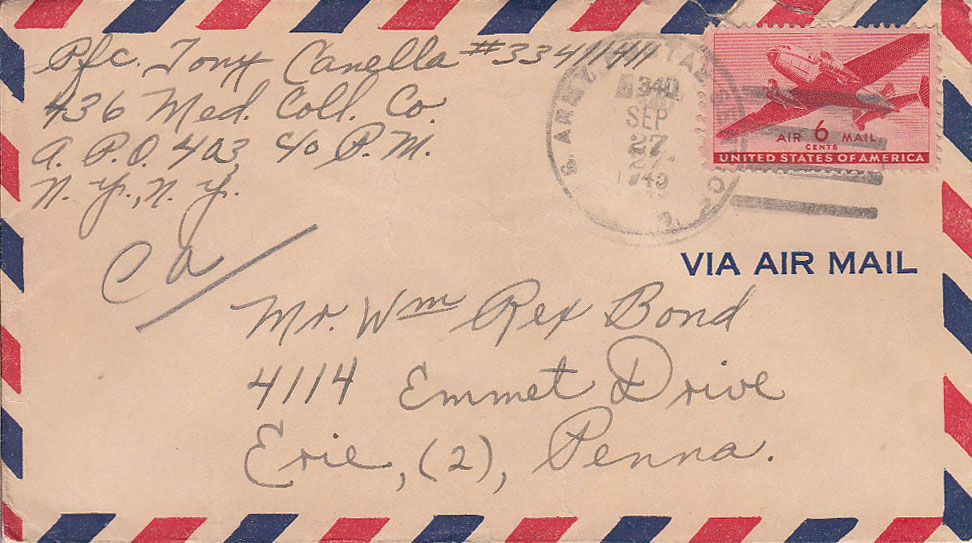 Pfc. Tony Canella #33411411
436 Med. Coll. Co.
A.P.O. 403, c/o P.M.
N.Y., N.Y.
340
SEP
27
1943
AIR 6 MAIL
CENTS
UNITED STATES OF AMERICA
VIA AIR MAIL
Mr. Wm Rex Bond
4114 Emmet Drive
Erie, (2), Penna.